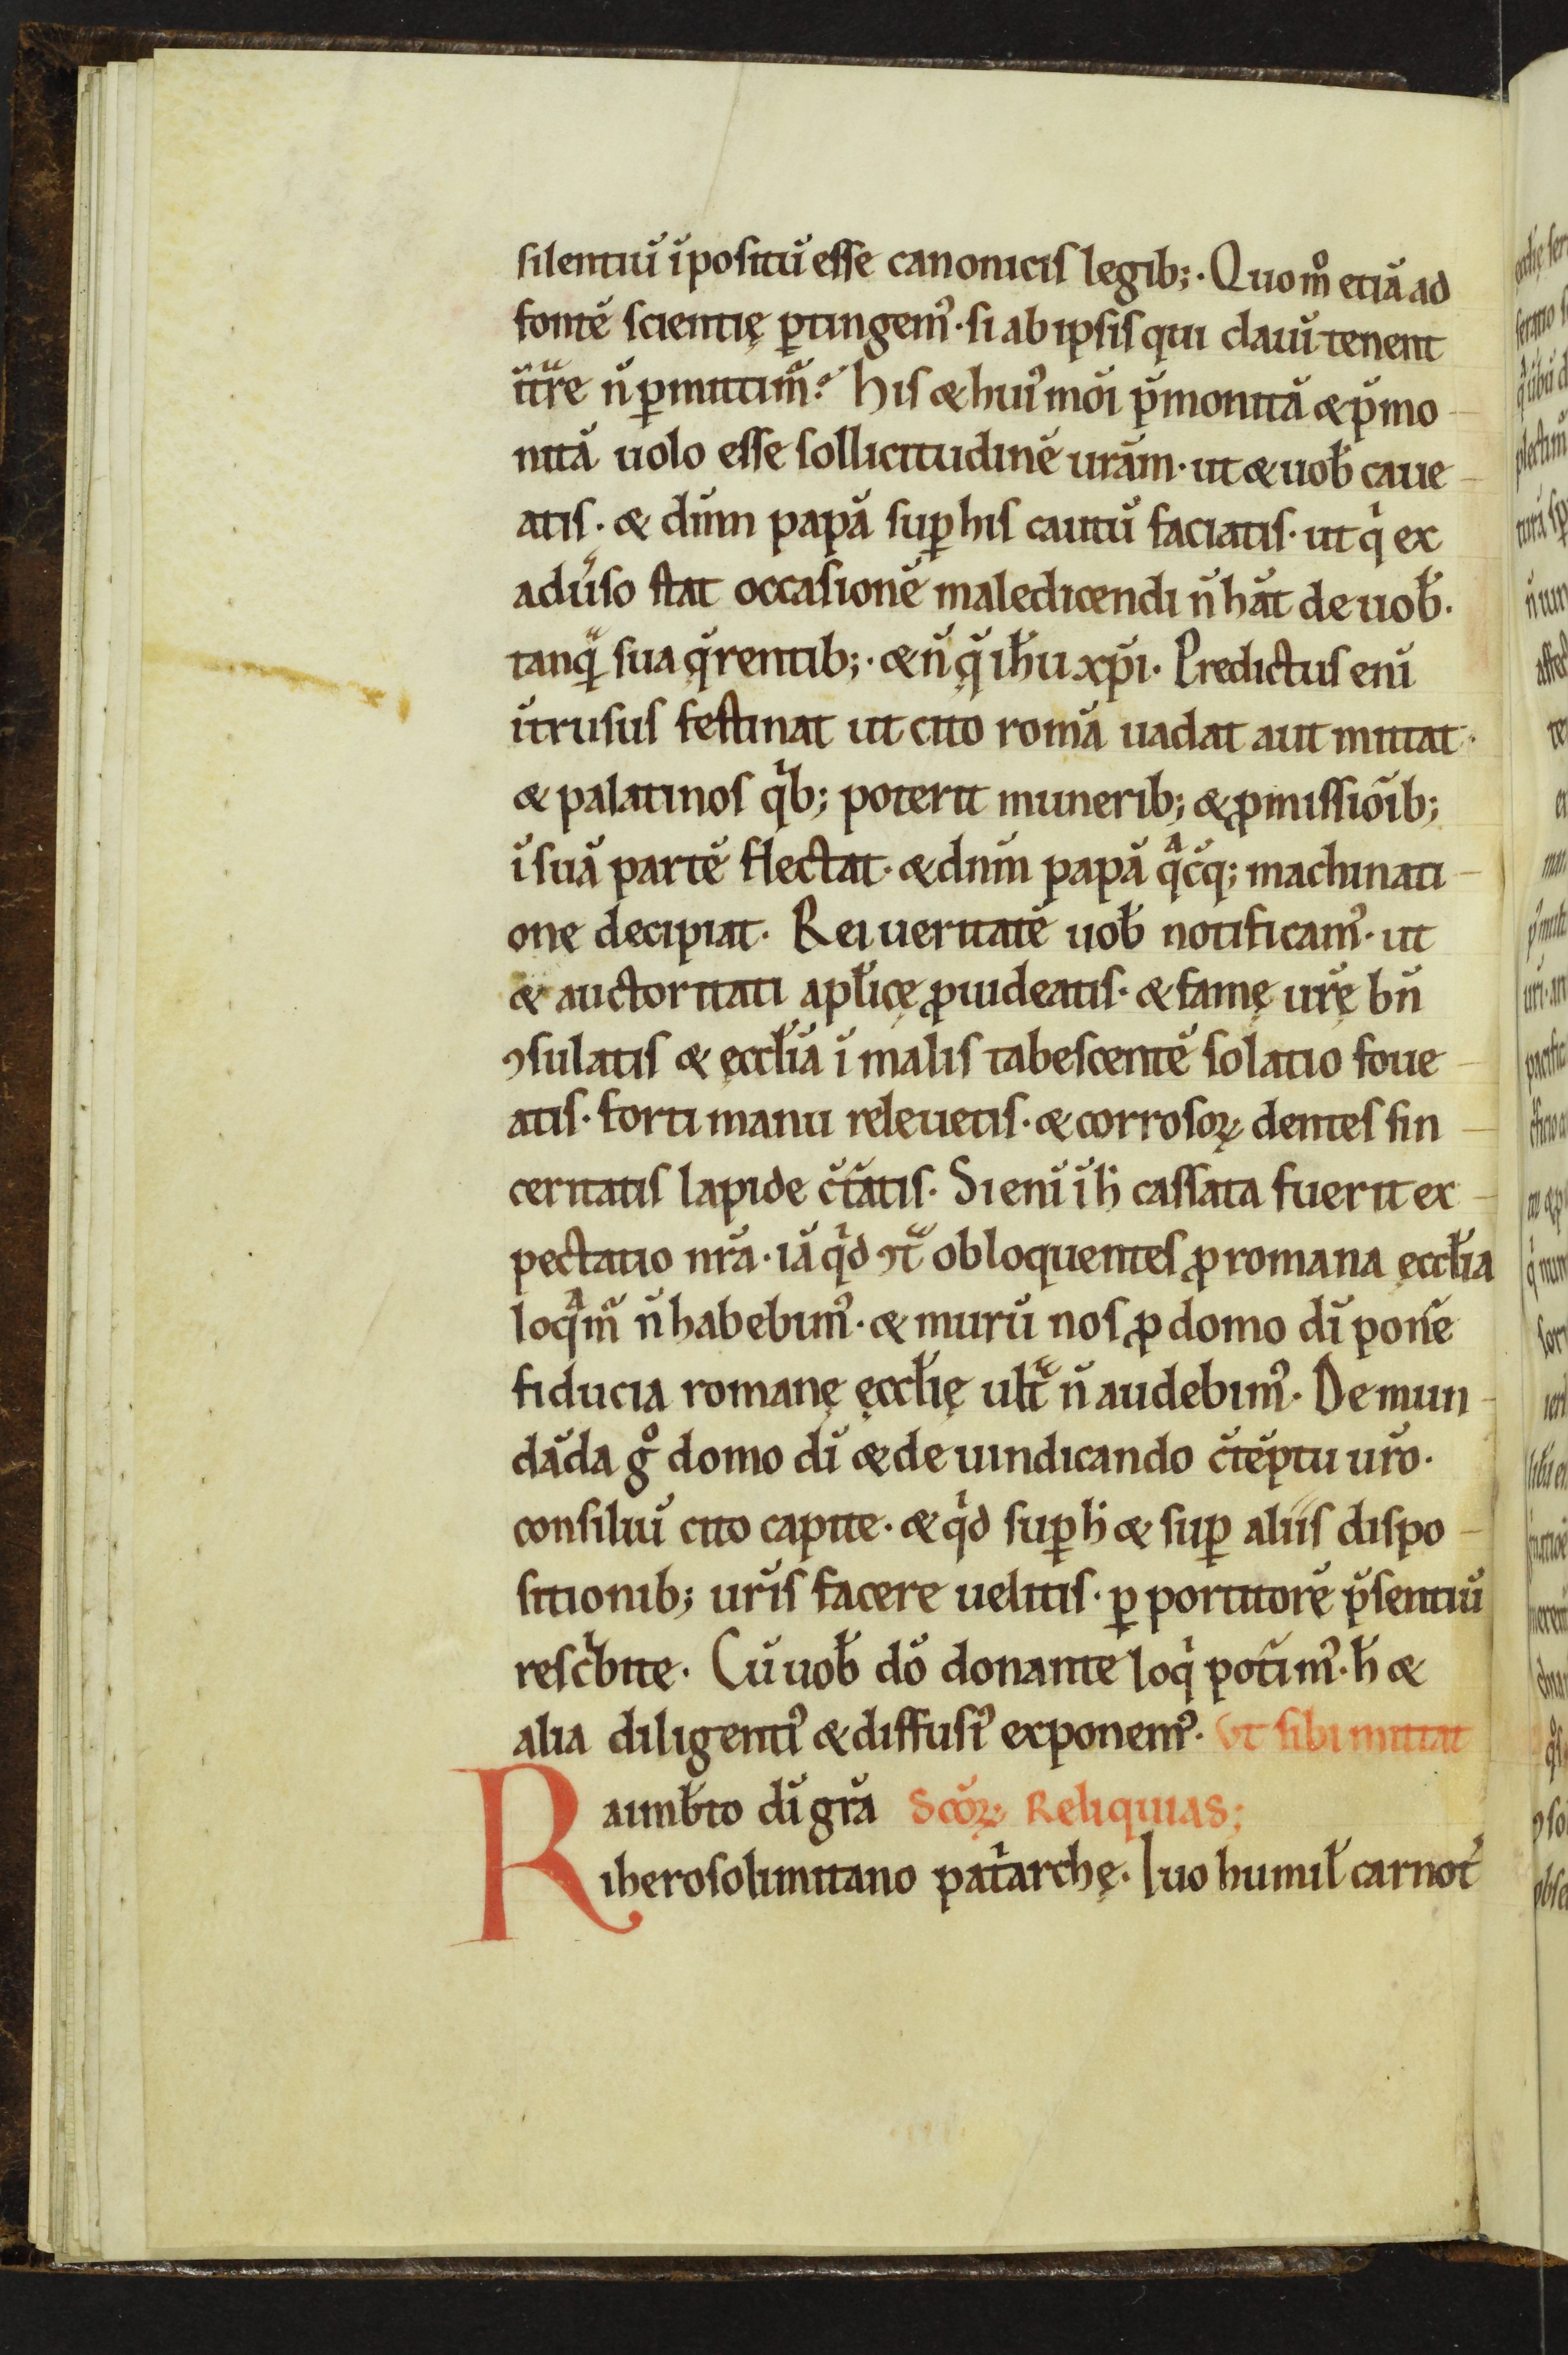 silentiū īpositū esse canonicis legib;. Quom̊ etiā ad
fontē scientię ꝑtingem᾿. si ab ipsis qui clauī tenent
īt̃re n̄ ꝑmittim̃? His & hui᾿mōi p̄monitā & p̄mo
nitā uolo esse sollicitudinē ur̄am. ut & uob̄ caue
atis. & dn̄m papā suꝑ his cautū faciatis. ut qͥ ex
adũso stat occasionē maledicendi n̄ hāt de uob̄.
tanq̃ sua q̄rentib;. & n̄ q̨̄ ih̄u xp̄i. Predictus enī
ītrusus festinat ut cito romā uadat aut mittat.
& palatinos qͥb; poterit munerib; & ꝓmissiōib;
ī suā partē flectat. & dn̄m papā qͣcūq; machinati
one decipiat. Rei ueritatē uob̄ notificam᾿. ut
& auctoritati apl̄icę ꝓuideatis. & famę ur̄ę bn̄
ꝯsulatis & ęccl̄iā ī malis tabescentē solatio foue
atis. forti manu releuetis. & corrosoꝝ dentes sin
ceritatis lapide c̄tātis. Si enī ī h̄ cassata fuerit ex
pectatio nr̄a. iā qͥd ꝯt̃ obloquentes ꝓ romana ęccl̄ia
loqͣm̃ n̄ habebim᾿. & murū nos ꝓ domo dī ponē
fiducia romanę ęccl̄ię ult̃ n̄ audebim᾿. De mun
dāda g̊ domo dī & de uindicando c̄tēptu ur̄o.
consiliū cito capite. & qͥd suꝑ h̄ & suꝑ aliis dispo
sitionib; ur̄is facere uelitis. ꝑ portitorē p̄sentiū
rescͥbite. Cū uob̄ dō donante loqͥ pot̃im᾿. h̄ &
alia diligenti᾿ & diffusi᾿ exponem᾿. Vt sibi mittat
Raimb̄to dī gr̄a Scōꝝ Reliquias;
iherosolimitano patͥarchę. Iuo humil̄ carnot̄